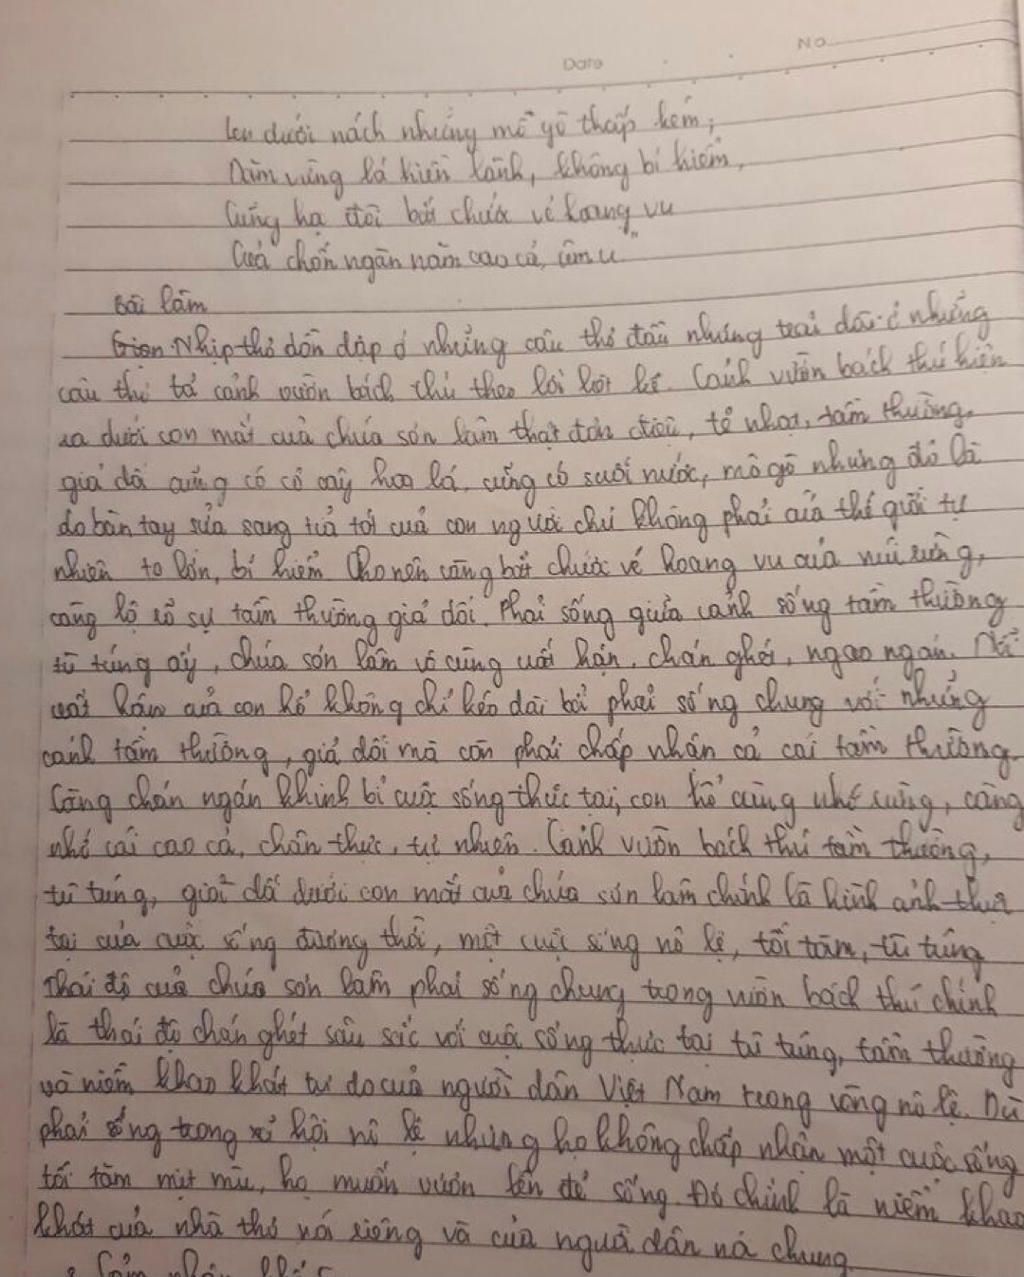 Date No
len dưới nách những mô gò thấp kém;
Dăm vừng lá hiền lành, không bí hiểm,
Cũng học đòi bắt chước vẻ hoang vu
Của chốn ngàn năm cao cả, âm u"
Bài làm
Nhịp thơ dồn dập ở những câu thơ đầu nhưng trải dài ở những
câu thơ tả cảnh vườn bách thú theo lối liệt kê. Cảnh vườn bách thú hiện
ra dưới con mắt của chúa sơn lâm thật đơn điệu, tẻ nhạt, tầm thường,
giả dối cũng có cỏ cây hoa lá, cũng có suối nước, mô gò nhưng đó là
do bàn tay sửa sang tỉa tót của con người chứ không phải của thế giới tự
nhiên to lớn, bí hiểm Cho nên càng bắt chước vẻ hoang vu của núi rừng,
càng lộ rõ sự tầm thường giả dối. Phải sống giữa cảnh sống tầm thường
tù túng ấy, chúa sơn lâm vô cùng uất hận, chán ghét, ngao ngán. Nỗi
uất hận của con hổ không chỉ kéo dài bởi phải sống chung với những
cảnh tầm thường, giả dối mà còn phải chấp nhận cả cái tầm thường.
Càng chán ngán khinh bỉ cuộc sống thực tại, con hổ càng nhớ rừng, càng
nhớ cái cao cả, chân thực, tự nhiên. Cảnh vườn bách thú tầm thường,
tù túng, giả dối dưới con mắt của chúa sơn lâm chính là hình ảnh thực
tại của cuộc sống đương thời, một cuộc sống nô lệ, tối tăm, tù túng
Thái độ của chúa sơn lâm phải sống chung trong vườn bách thú chính
là thái độ chán ghét sâu sắc với cuộc sống thực tại tù túng, tầm thường
và niềm khao khát tự do của người dân Việt Nam trong vòng nô lệ. Dù
phải sống trong xã hội nô lệ nhưng họ không chấp nhận một cuộc sống
tối tăm mịt mù, họ muốn vươn lên để sống. Đó chính là niềm khao
khát của nhà thơ nói riêng và của người dân nói chung.